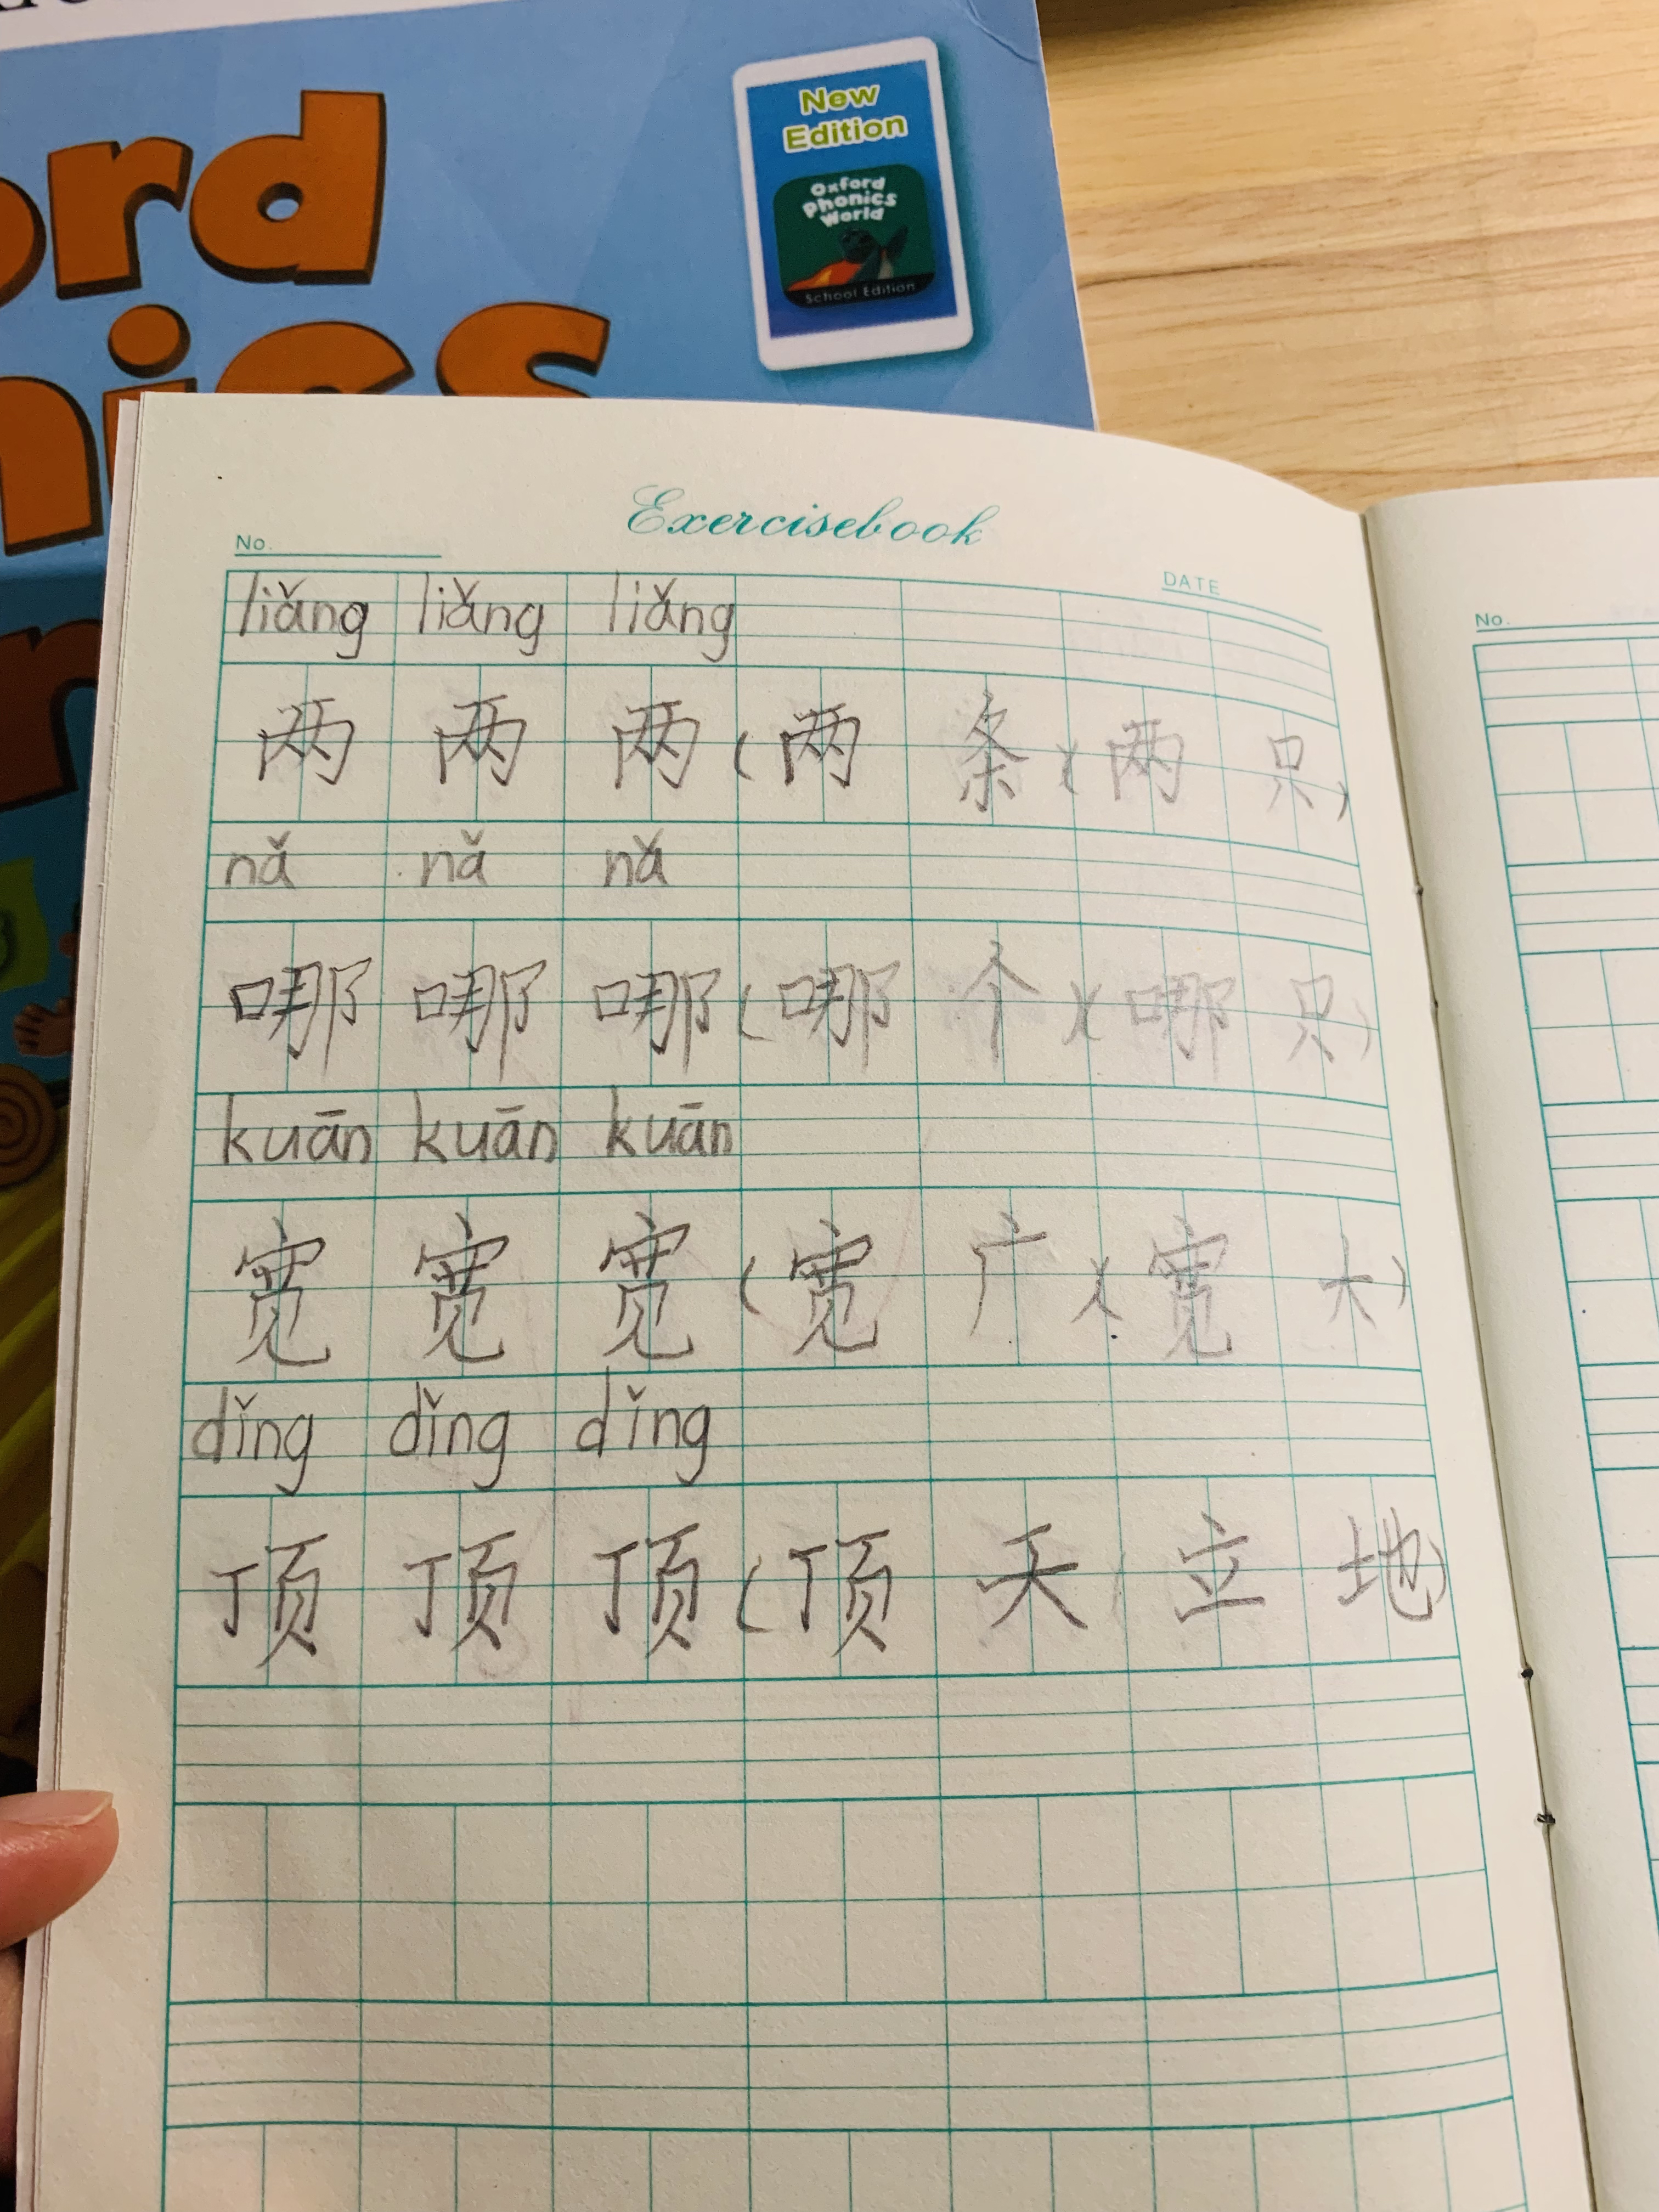 ord
nics
New
Edition
Oxford
Phonics
World
School Edition
Exercisebook
No.
DATE
liǎng liǎng liǎng
两 两 两 (两 条)(两 只)
nǎ nǎ nǎ
哪 哪 哪 (哪 个)(哪 只)
kuān kuān kuān
宽 宽 宽 (宽 广)(宽 大)
dǐng dǐng dǐng
顶 顶 顶 (顶 天 立 地)
No.